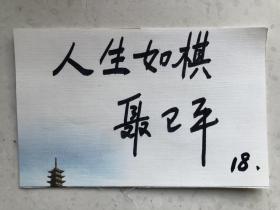 人生如棋
聂卫平
18.